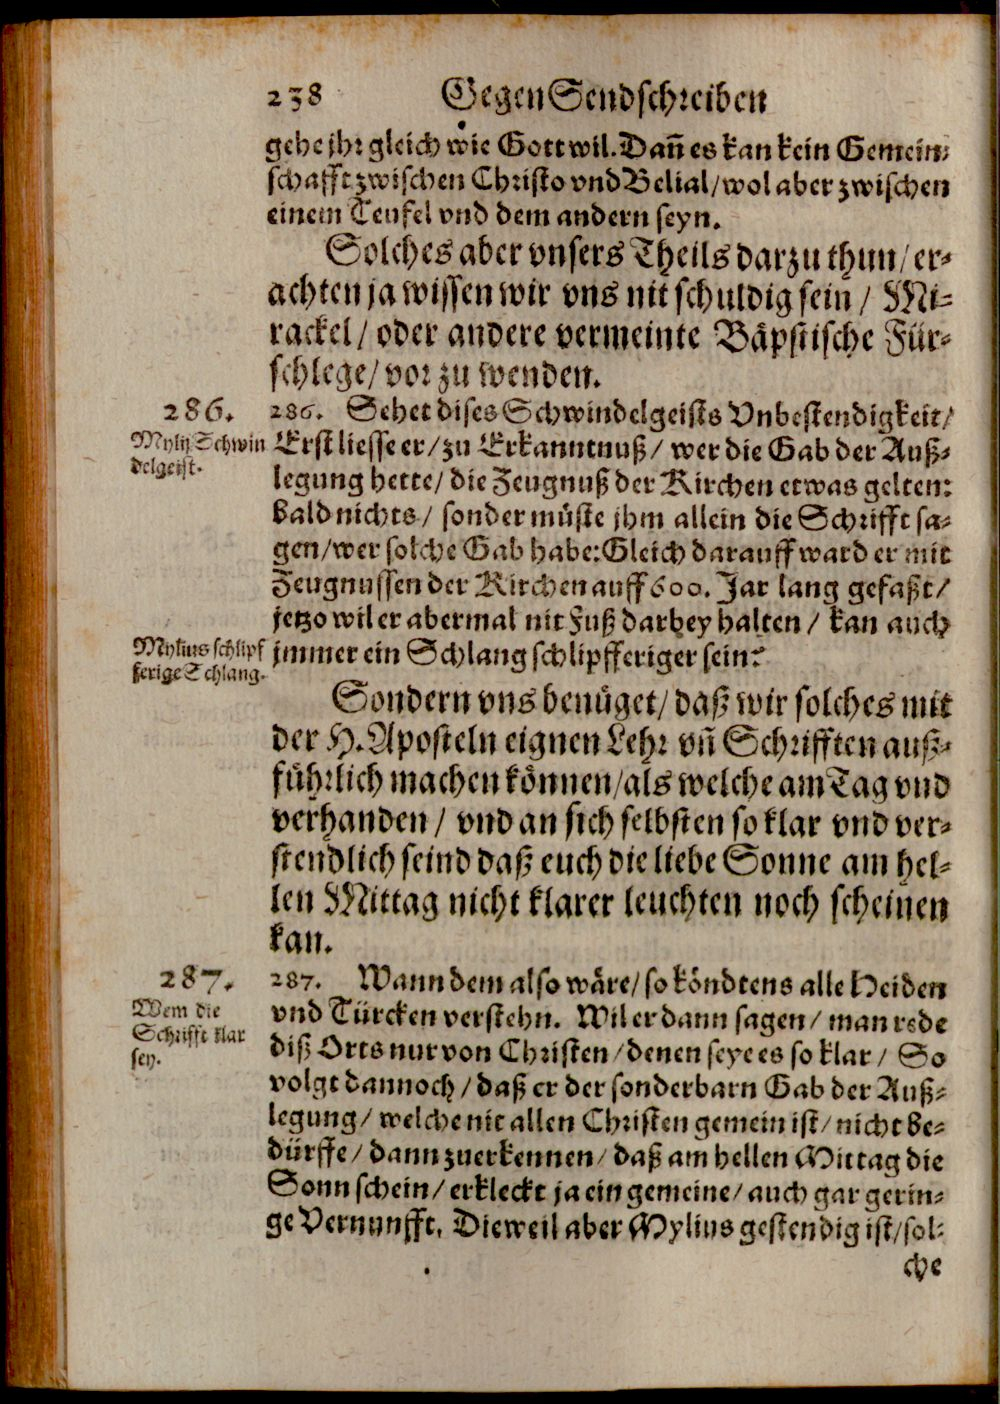 238 Gegen Sendschreiben
gehe jhr gleich wie Gott wil. Dañ es kan kein Gemein-
schafft zwischen Christo vnd Belial/ wol aber zwischen
einem Teufel vnd dem andern seyn.
Solches aber vnsers Theils darzu thun/ er-
achten ja wissen wir vns nit schuldig sein/ Mi-
rackel/ oder andere vermeinte Bäpstische Für-
schlege/ vor zu wenden.
286.
Mylij Schwin
delgeist.
286. Sehet dises Schwindelgeists Vnbestendigkeit/
Erst liesse er/ zu Erkanntnuß/ wer die Gab der Auß-
legung hette/ die Zeugnuß der Kirchen etwas gelten:
bald nichts/ sonder müste jhm allein die Schrifft sa-
gen/ wer solche Gab habe: Gleich darauff ward er mit
Zeugnussen der Kirchen auff 600. Jar lang gefaßt/
jetzo wil er abermal nit Fuß darbey halten/ kan auch
Mylius schlipf
ferige Schlang.
jmmer ein Schlang schlipfferiger sein?
Sondern vns benüget/ daß wir solches mit
der H. Aposteln eignen Lehr vñ Schrifften auß-
führlich machen können/ als welche am Tag vnd
verhanden/ vnd an sich selbsten so klar vnd ver-
stendlich seind daß euch die liebe Sonne am hel-
len Mittag nicht klarer leuchten noch scheinen
kan.
287.
Wem die
Schrifft klar
sey.
287. Wann dem also wäre/ so köndtens alle Heiden
vnd Türcken verstehn. Wil er dann sagen/ man rede
diß Orts nur von Christen/ denen seye es so klar/ So
volgt dannoch/ daß er der sonderbarn Gab der Auß-
legung/ welche nit allen Christen gemein ist/ nicht be-
dürffe/ dann zuerkennen/ daß am hellen Mittag die
Sonn schein/ erkleckt ja ein gemeine/ auch gar gerin-
ge Vernunfft. Dieweil aber Mylius gestendig ist/ sol-
che